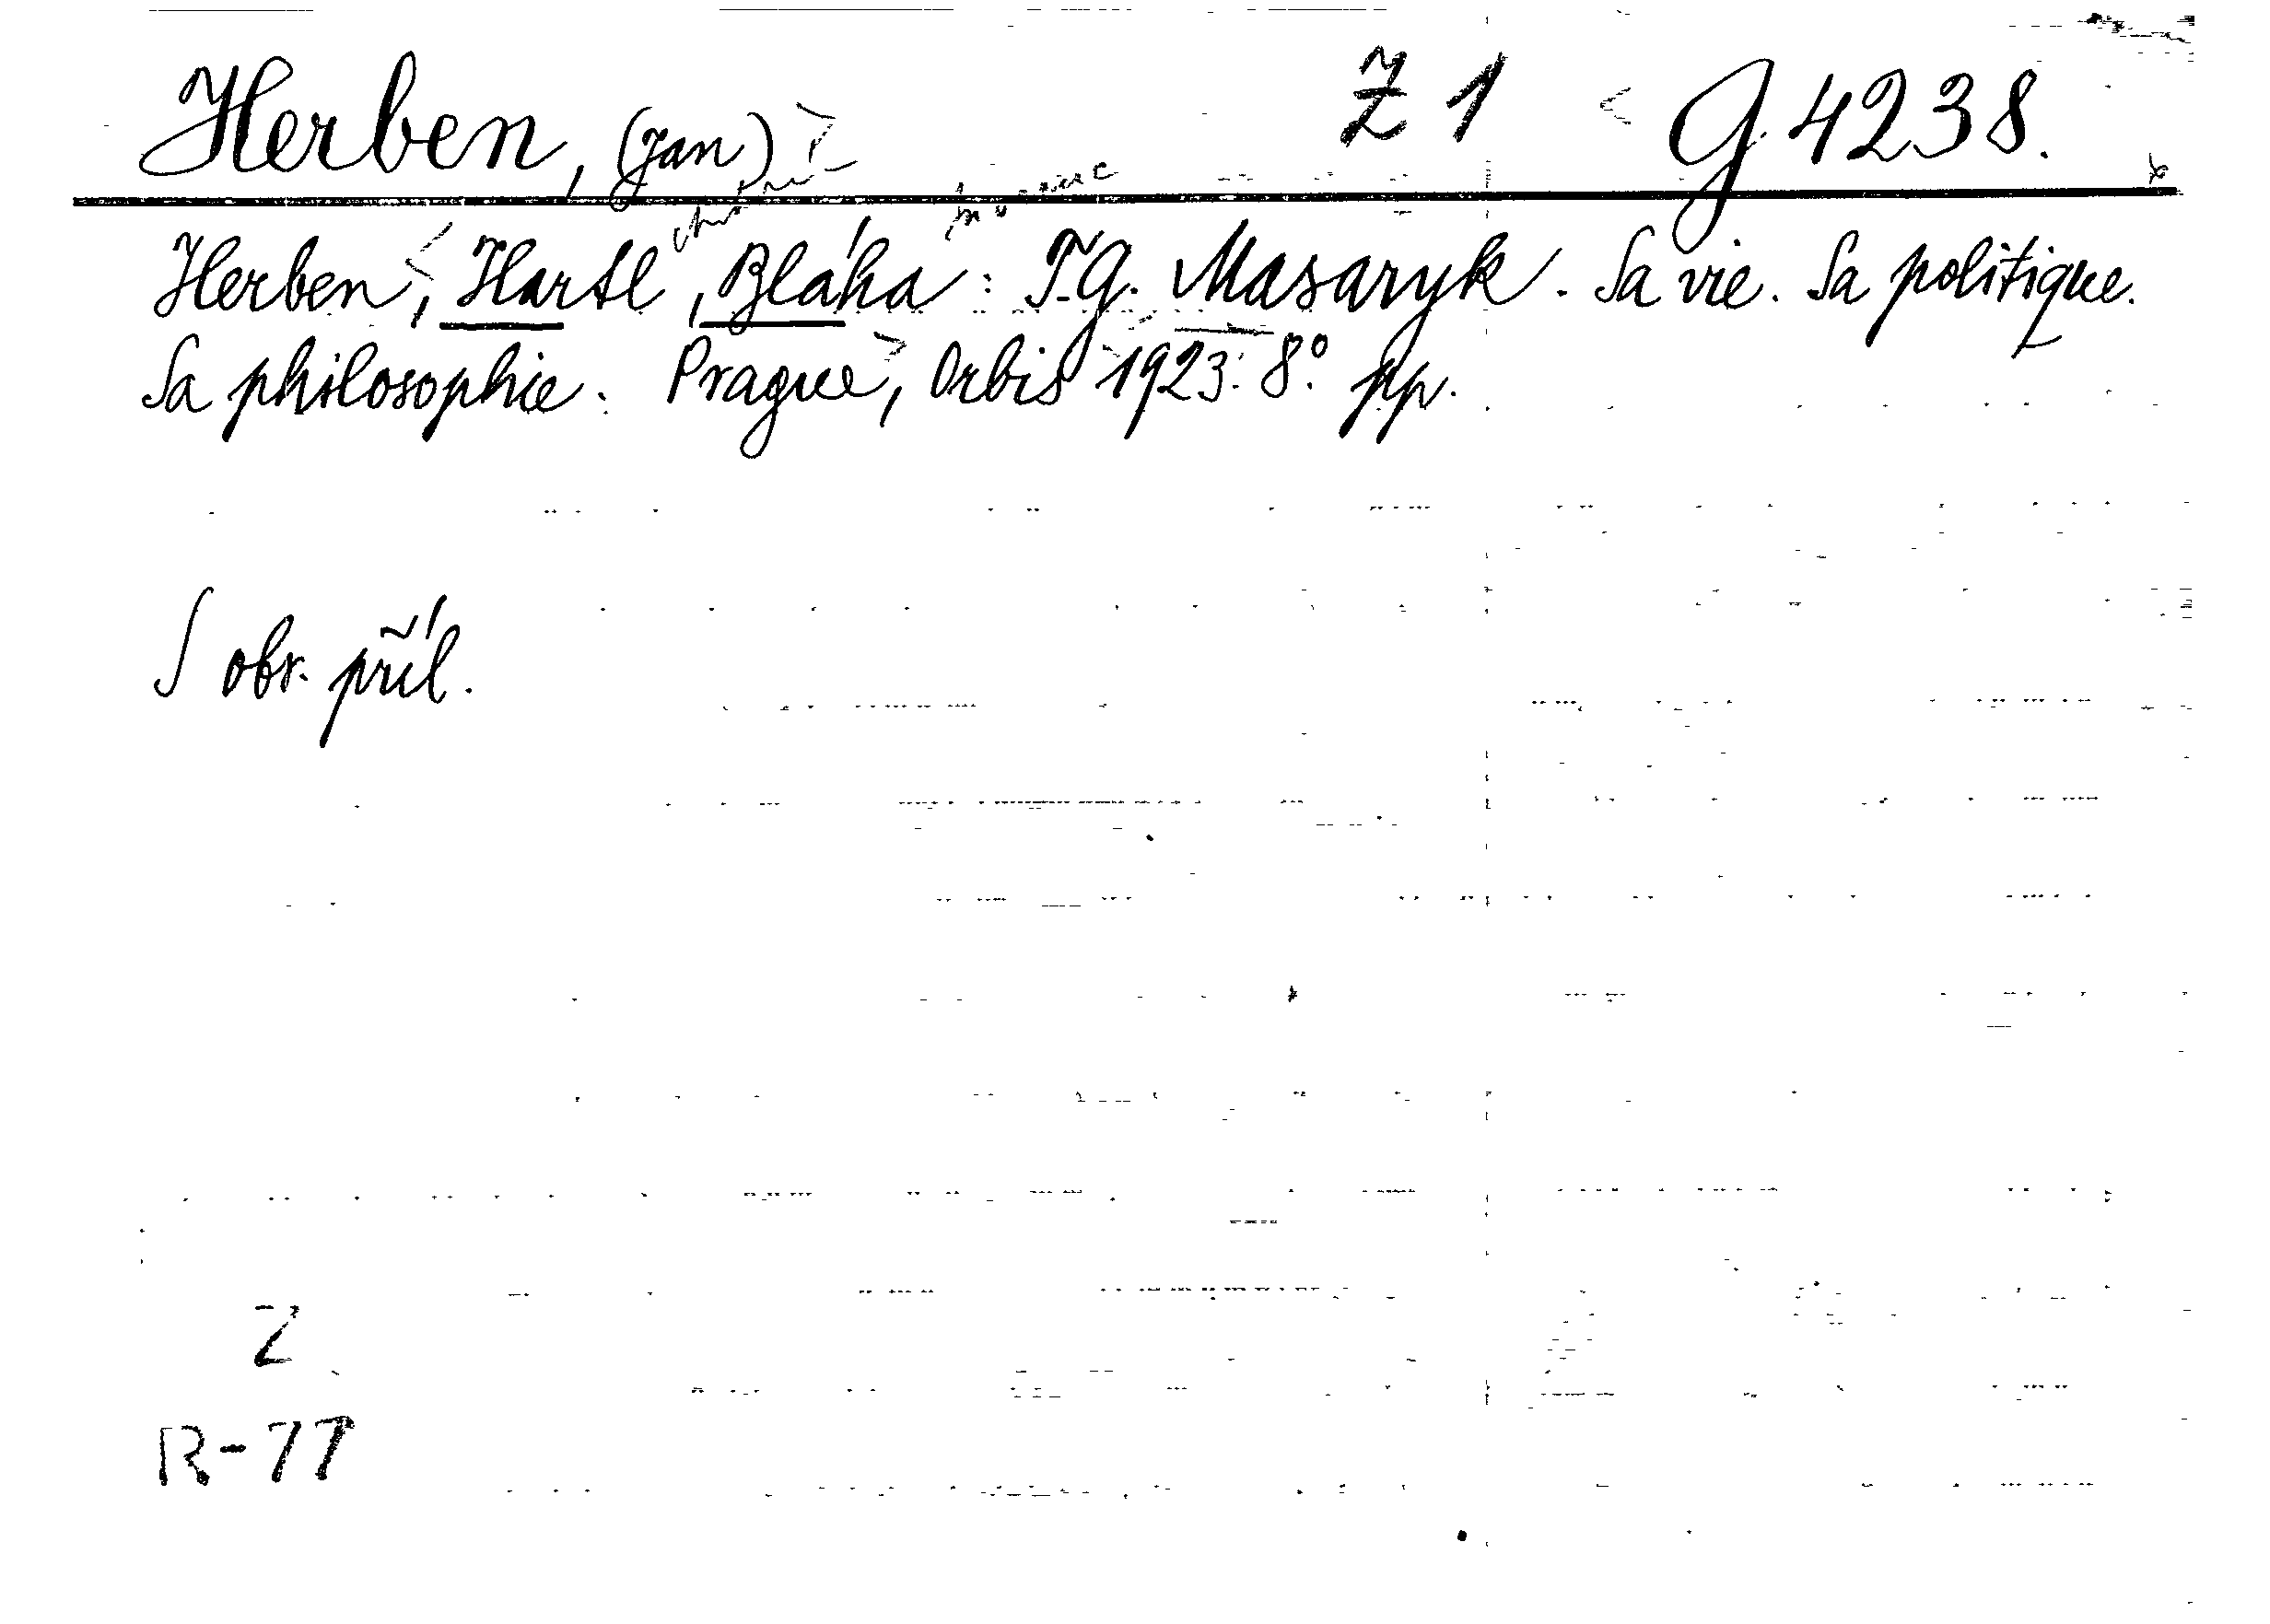 Herben, (Jan) Z 1 G 4238.
Herben, Hartl, Bláha: T.G. Masaryk. Sa vie. Sa politique.
Sa philosophie. Prague, Orbis 1923. 8° pp.
S obr. příl.
Z
R-77